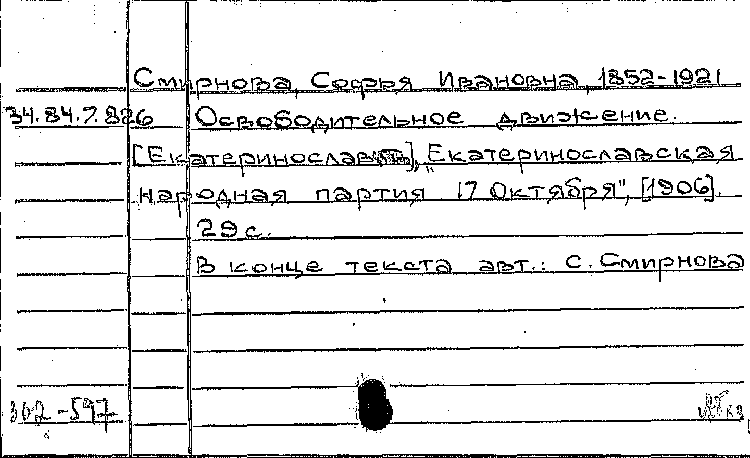 Смирнова, Софья Ивановна, 1852-1921
34.84.7.826 Освободительное движение.
[Екатеринослав], "Екатеринославская
народная партия 17 Октября", [1906].
29 с.
В конце текста авт.: С. Смирнова
302-597